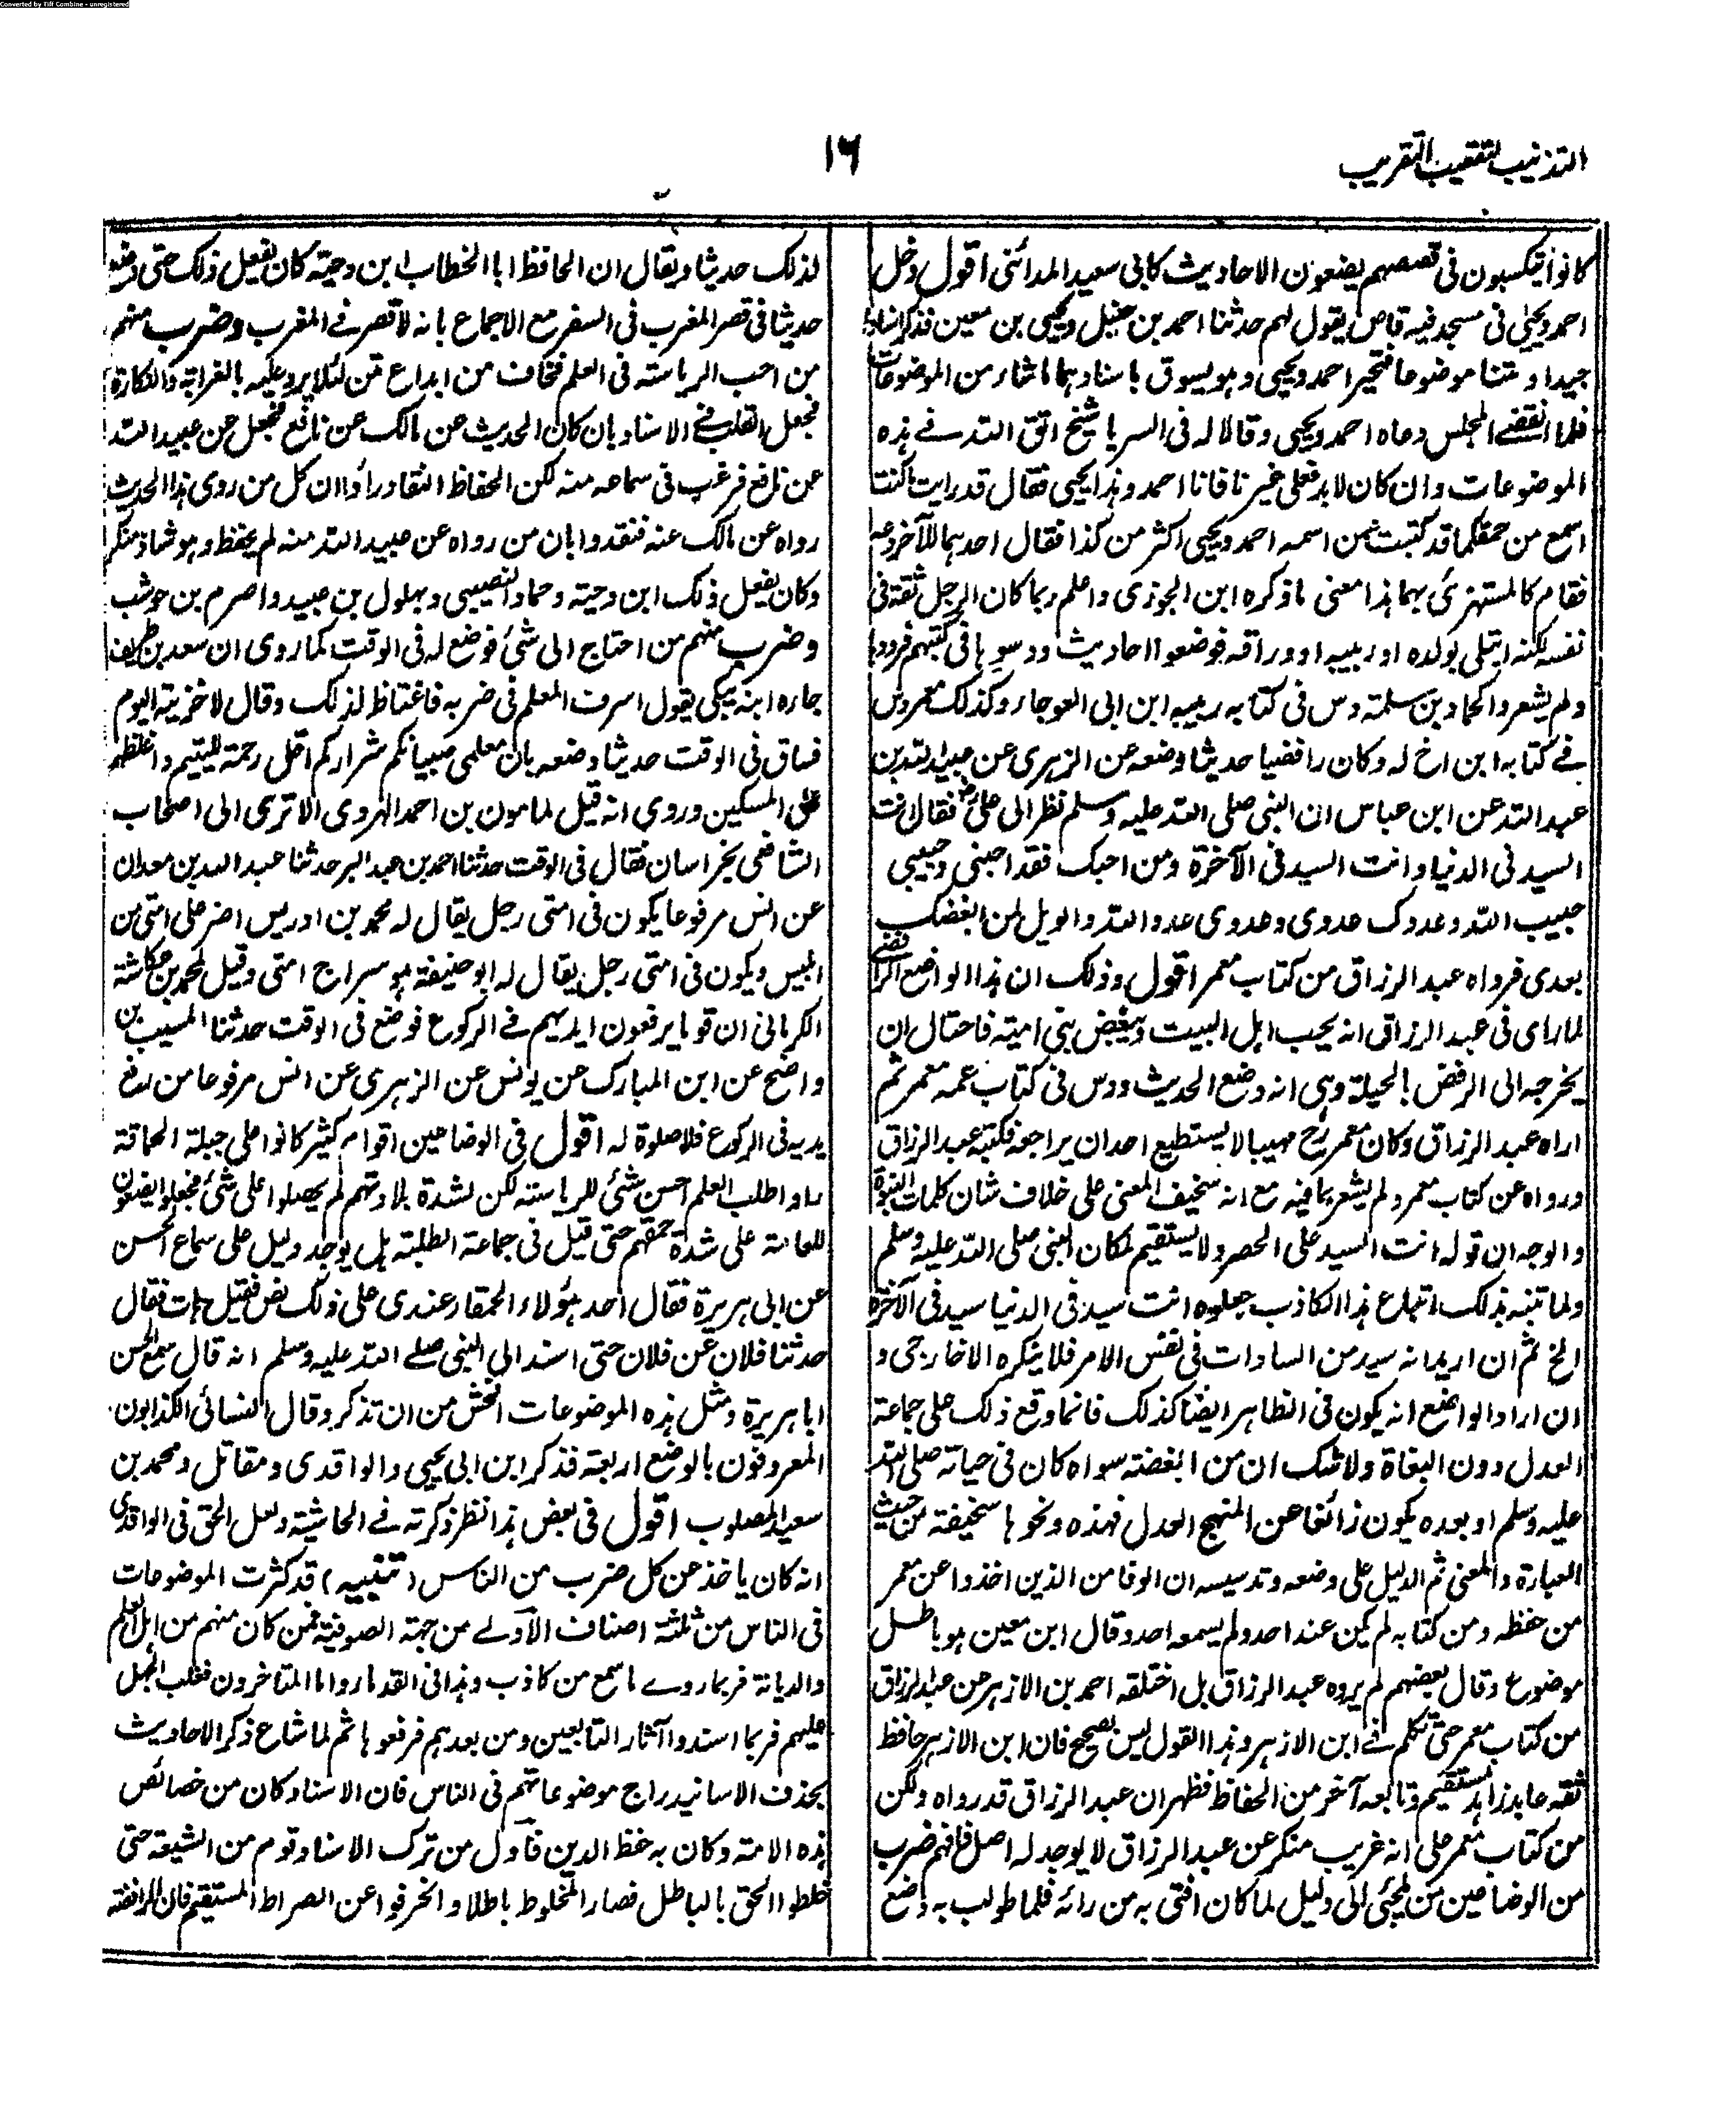 Converted by Tiff Combine - unregistered
التذنيب لتعقيب التقريب
١٦
كانوا يتكسبون فى قصصهم يضعون الاحاديث كابى سعيد المدائنى اقول دخل
احمد ويحيٰى فى مسجد فيه قاص يقول لهم حدثنا احمد بن حنبل ويحيى بن معين فذكر اسنادا
جيدا ومتنا موضوعا فتحير احمد ويحيى وهو يسوق باسنادهما ماشاء من الموضوعات
فلما انقضے المجلس دعاه احمد ويحيى وقالا له فى السر يا شيخ اتق الله فے هذه
الموضوعات وان كان لابد فعلى غيرنا فانا احمد وهذا يحيى فقال قد رايت كنت
اسمع من حمقكما قد كتبت عمن اسمه احمد ويحيى اكثر من كذا فقال احدهما للآخر دعه
فقام كالمستهزئ بهما هذا معنى ما ذكره ابن الجوزى واعلم ربما كان الرجل ثقة فى
نفسه لكنه ابتلى بولده او ربيبه او وراقه فوضعوا احاديث ودسوها فى كتبهم فرووا
ولم يشعروا كحماد بن سلمة دس فى كتابه ربيبه ابن ابى العوجاء وكذلك معمر دس
فے كتابه ابن اخ له وكان رافضيا حديثا وضعه عن الزهرى عن عبيد الله بن
عبد الله عن ابن عباس ان النبى صلى الله عليه وسلم نظر الى على رض فقال انت
السيد فى الدنيا وانت السيد فى الآخرة ومن احبك فقد احبنى وحبيبى
حبيب الله وعدوك عدوى وعدوى عدو الله والويل لمن ابغضك
بعدى فرواه عبد الرزاق من كتاب معمر اقول وذلك ان هذا الواضع الرافضے
لما راى فى عبد الرزاق انه يحب اهل البيت ويبغض بنى امية فاحتال ان
يخرجه الى الرفض بالحيلة وهى انه وضع الحديث ودس فى كتاب عمه معمر ثم
اراه عبد الرزاق وكان معمر رح مهيبا لا يستطيع احد ان يراجعه فكتبه عبد الرزاق
ورواه عن كتاب معمر ولم يشعر بما فيه مع انه سخيف المعنى على خلاف شان كلمات النبوة
والوجه ان قوله انت السيد على الحصر ولا يستقيم لمكان النبى صلى الله عليه وسلم
ولما تنبه بذلك اتباع هذا الكاذب جعلوه انت سيد فى الدنيا سيد فى الآخرة
الخ ثم ان اريد انه سيد من السادات فى نفس الامر فلا ينكره الا خارجى و
ان اراد الواضع انه يكون فى الظاهر ايضا كذلك فانما وقع ذلك على جماعة
العدل دون البغاة ولا شك ان من ابغضه سواء كان فى حياته صلى الله
عليه وسلم او بعده يكون زائغا عن المنهج العدل فهذه ونحوها سخيفة من حيث
العبارة والمعنى ثم الدليل على وضعه وتدسيسه ان الوفا من الذين اخذوا عن معمر
من حفظه ومن كتابه لم يكن عند احد ولم يسمعه احد وقال ابن معين هو باطل
موضوع وقال بعضهم لم يروه عبد الرزاق بل اختلقه احمد بن الازهر عن عبد الرزاق
من كتاب معمر حتى تكلم فے ابن الازهر وهذا القول ليس بصحيح فان ابن الازهر حافظ
ثقة عابد زاهد مستقيم وتابعه آخر من الحفاظ فظهر ان عبد الرزاق قد رواه ولكن
من كتاب معمر على انه غريب منكر عن عبد الرزاق لا يوجد له اصل فافهم ضرب
من الوضاعين من يلجئ الى دليل لما كان افتى به من رائه فلما طولب به وضع
لذلك حديثا ويقال ان الحافظ ابا الخطاب ابن دحية كان يفعل ذلك حتى وضع
حديثا فى قصر المغرب فى السفر مع الاجماع بانه لا قصر فے المغرب وضرب منهم
من احب الرياسته فى العلم فخاف من ابداع متن لئلا يرد عليه بالغرابة والنكارة
فجعل القلب فے الاسناد بان كان الحديث عن مالك عن نافع فجعل عن عبيد الله
عن نافع فرغب فى سماعه منه لكن الحفاظ النقاد رأوا ان كل من روى هذا الحديث
رواه عن مالك عنه فنقدوا بان من رواه عن عبيد الله منه لم يحفظ وهو شاذ منكر
وكان يفعل ذلك ابن دحية وحماد النصيبى وبهلول بن عبيد واصرم بن حوشب
وضرب منهم من احتاج الى شئ فوضع له فى الوقت كما روى ان سعد بن طريف
جاءه ابنه يبكى يقول اسرف المعلم فى ضربه فاغتاظ لذلك وقال لاخزينه اليوم
فساق فى الوقت حديثا وضعه بان معلمى صبيانكم شراركم اقل رحمة لليتيم واغلظهم
على المسكين وروى انه قيل لمامون بن احمد الهروى الا ترى الى اصحاب
الشافعى بخراسان فقال فى الوقت حدثنا احمد بن عبد البر حدثنا عبد الله بن معدان
عن انس مرفوعا يكون فى امتى رجل يقال له محمد بن ادريس اضر على امتى من
ابليس ويكون فى امتى رجل يقال له ابو حنيفة هو سراج امتى وقيل لمحمد بن عكاشة
الكرمانى ان قوما يرفعون ايديهم فے الركوع فوضع فى الوقت حدثنا المسيب بن
واضح عن ابن المبارك عن يونس عن الزهرى عن انس مرفوعا من رفع
يديه فى الركوع فلا صلوة له اقول فى الوضاعين اقوام كثير كانوا على جبلة الحماقة
راوا طلب العلم احسن شئ للرياسته لكن لشدة بلادتهم لم يحصلوا على شئ فجعلوا يضعون
للعامة على شدة حمقهم حتى قيل فى جماعة الطلبته هل يوجد دليل على سماع الحسن
عن ابى هريرة فقال احد هؤلاء الحمقاء عندى على ذلك نص فقيل هات فقال
حدثنا فلان عن فلان حتى اسند الى النبى صلے الله عليه وسلم انه قال سمع الحسن
ابا هريرة ومثل هذه الموضوعات افحش من ان تذكر وقال النسائى الكذابون
المعروفون بالوضع اربعة فذكر ابن ابى يحيى والواقدى ومقاتل ومحمد بن
سعيد المصلوب اقول فى بعض هذا نظر ذكرته فے الحاشية ولعل الحق فى الواقدى
انه كان ياخذ عن كل ضرب من الناس (تنبيه) قد كثرت الموضوعات
فى الناس من ثلثة اصناف الاولے من جهة الصوفية فمن كان منهم من اهل العلم
والديانة فربما روے ما سمع من كاذب وهذا فى القدماء واما المتاخرون فغلب الجهل
عليهم فربما اسندوا آثار التابعين ومن بعدهم فرفعوها ثم لما شاع ذكر الاحاديث
بحذف الاسانيد راج موضوعاتهم فى الناس فان الاسناد كان من خصائص
هذه الامة وكان به حفظ الدين فاول من ترك الاسناد قوم من الشيعة حتى
خلطوا الحق بالباطل فصار المخلوط باطلا وانحرفوا عن الصراط المستقيم فان الرافضة